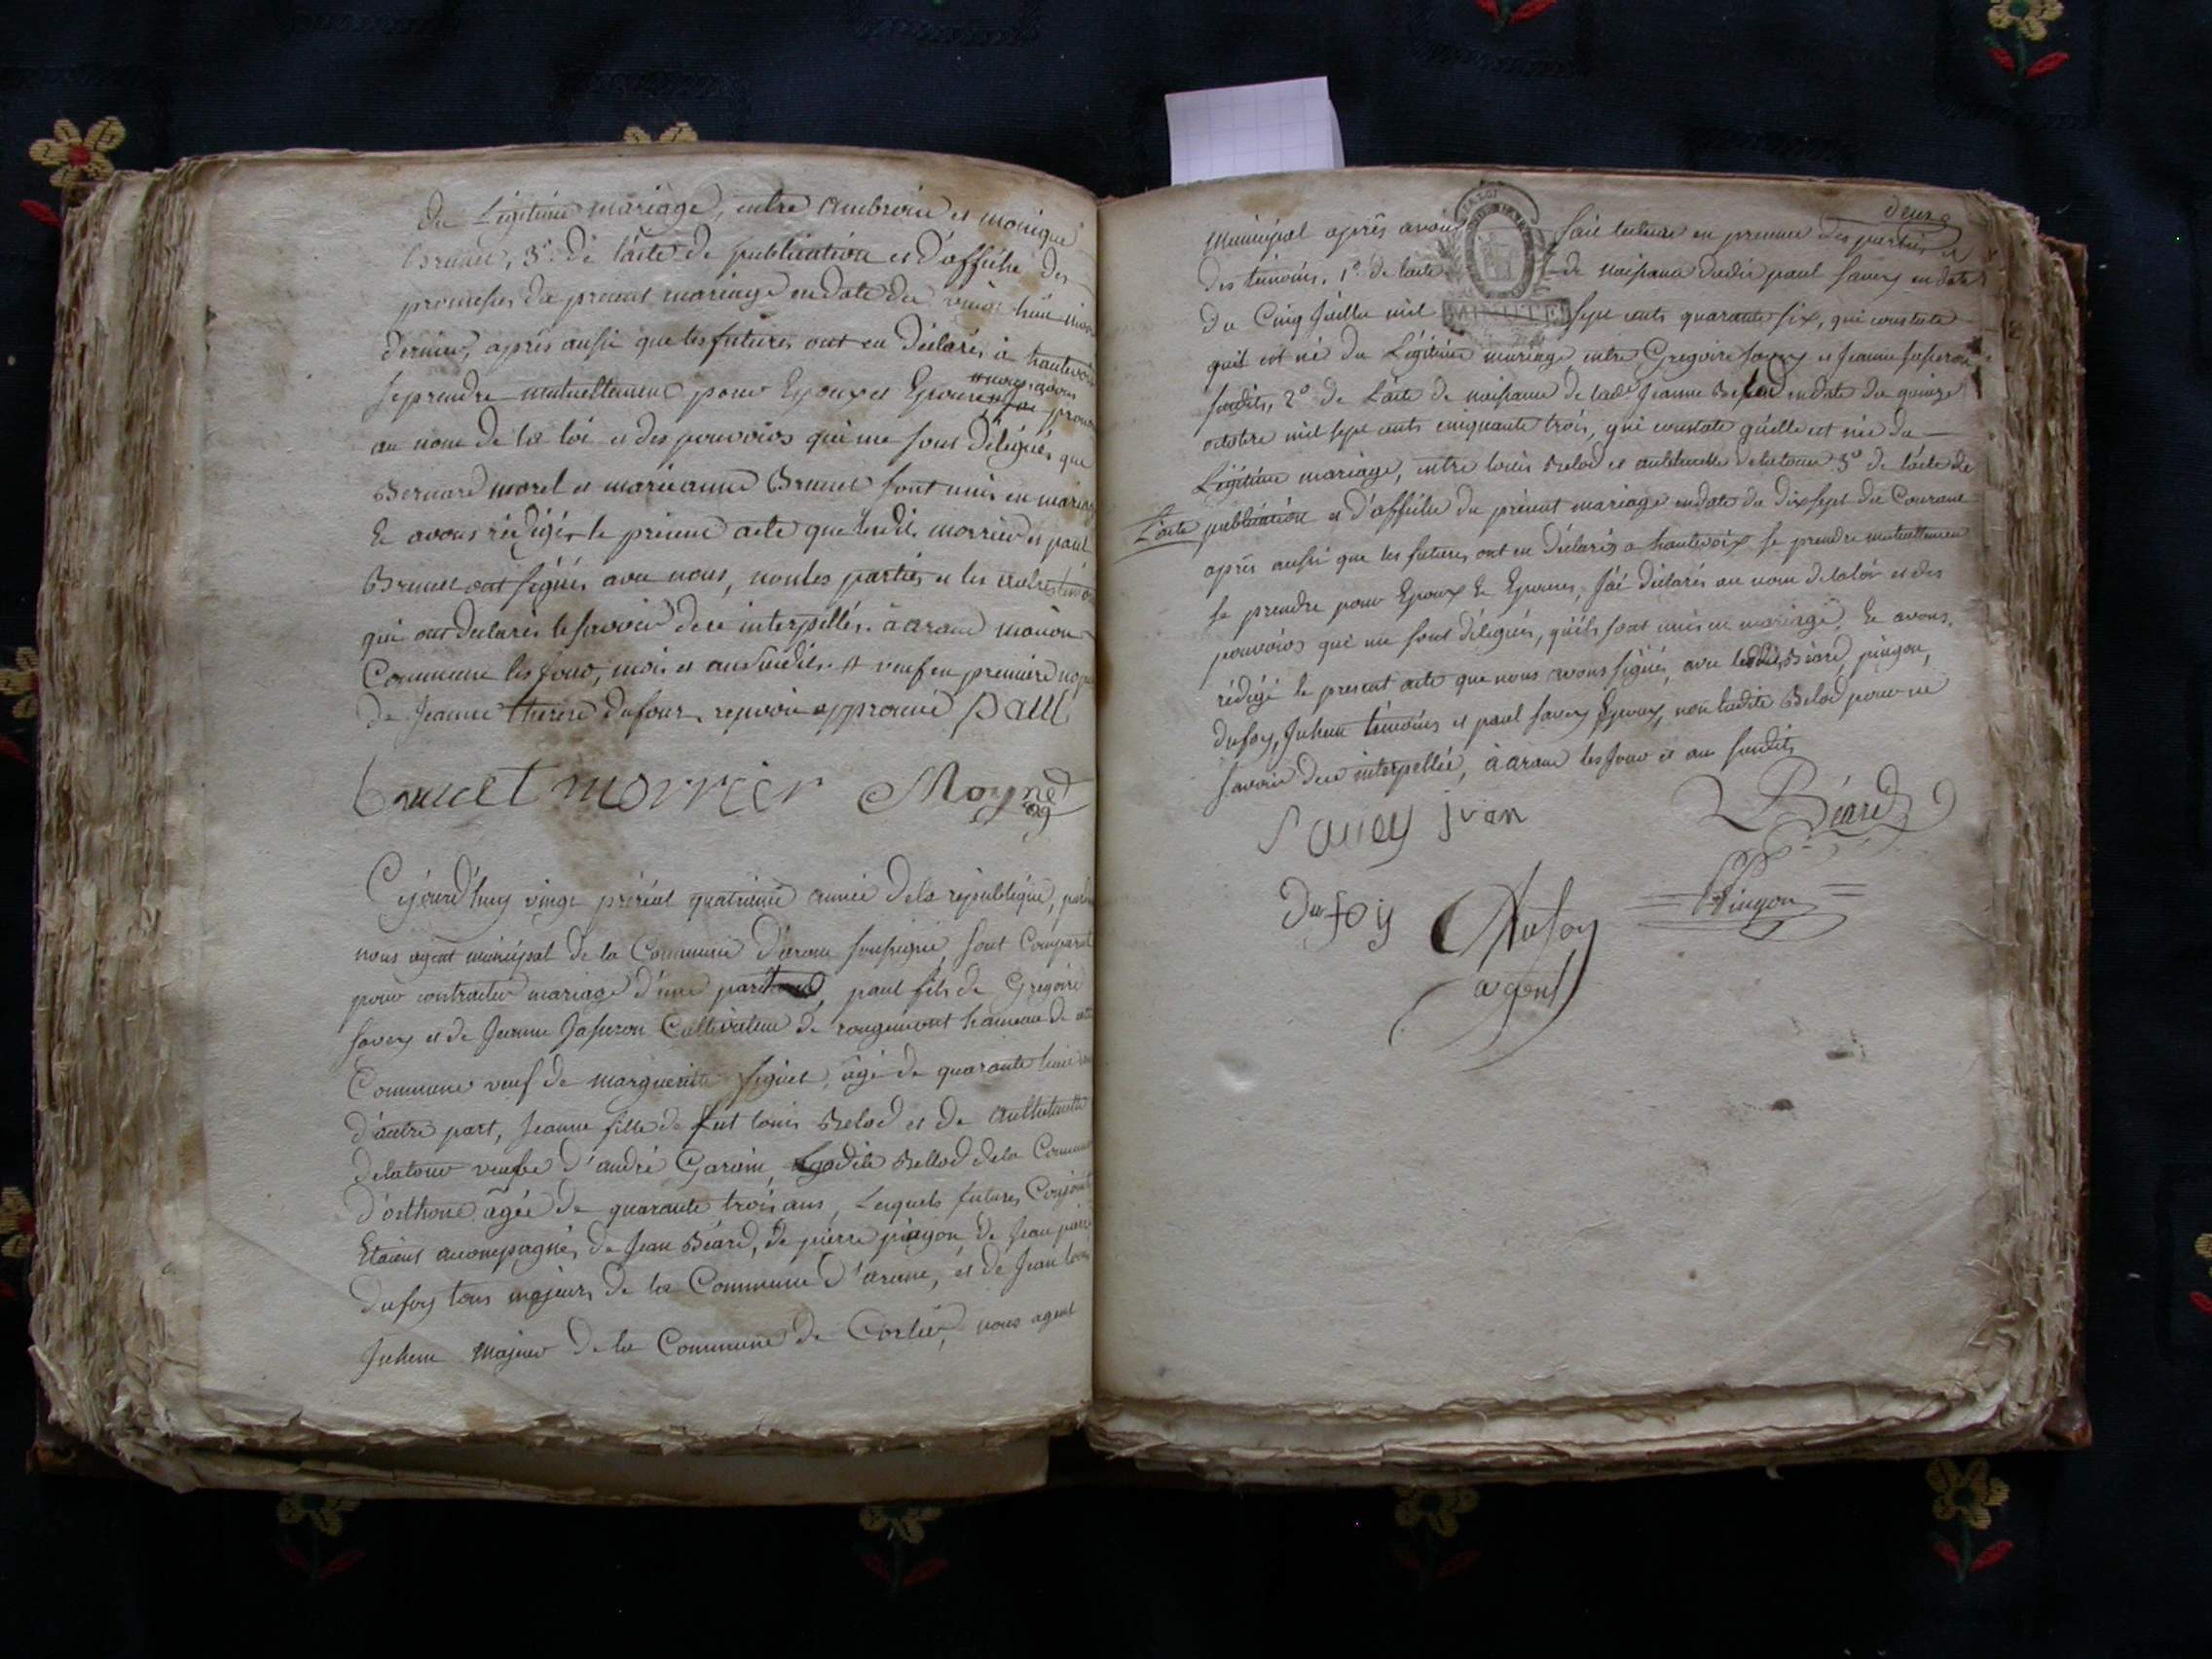 du Légitime mariage, entre Ambroise et monique
Brunet, 3.° de l'acte de publication et d'affiche des
promesses du present mariage en date du vingt huit
dernier, après aussi que les futures ont eu déclarés à hautevoix
se prendre mutuellement pour Epoux et Epouse nous avons
au nom de la loi et des pouvoirs qui me sont délégués que
Bernard morel et marieanne Brunet sont unis en mariage
Et avons rédigés le present acte que lesdits morrier et paul
Brunet ont signés avec nous, non les parties et les autres
qui ont declarés le savoir de ce interpellés. à aranc maison
Commune les jour, mois et an susdits. # veuf en premiere
de Jeanne therese dufour, renvoi approuvé paul
brunet morrier Moyned
ag
Cejourd'huy vingt prérial quatrieme année de la république, par
nous agent municipal de la Commune d'aranc soussigné, sont Comparut
pour contracter mariage d'une part, paul fils de Gregoire
savey et de Jeanne Jasseron Cultivateur de rougemont hameau de
Commune veuf de marguerite siguet, âgé de quarante huit
d'autre part, Jeanne fille de fut louis Belod et de anthelmette
delatour veufve d'andré Garin, Ladite Bellod de la Commune
d'osthone âgée de quarante trois ans, Lesquels futures Conjoints
Etoient accompagnés de Jean Béard, de pierre pingon de Jean
dufoy tous majeurs de la Commune d'aranc, et de Jean
Juhem majeur de la Commune de Corlier, nous agent
deux
Municipal après avoir fait lecture en presence des parties et
des témoins, 1.° de l'acte de naissance dudit paul savey en date
du Cinq Juillet mil MINUTE sept cents quarante six, qui constate
quil est né du Légitime mariage entre Gregoire savey et Jeanne Jasseron
susdits, 2.° de L'acte de naissance de lad.e Jeanne Belod en date du quinze
octobre mil sept cents cinquante trois, qui constate quelle est née du
Légitime mariage, entre louis Belod et anthelmette delatour 3.° de l'acte de
L'acte publication et d'affiche du présent mariage en date du dixsept du Courant
après aussi que les futures ont eu déclarés a hautevoix se prendre mutuellement
se prendre pour Epoux Et Epouses, J'ai déclarés au nom de la loi et des
pouvoirs qui me sont délégués, qu'ils sont unis en mariage, Et avons
rédigé le present acte que nous avons signés, avec lesdits Béard, pingon,
dufoy, Juhem témoins et paul savey Epoux, non ladite Belod pour ne
savoir de ce interpellée, à aranc les Jour et an susdits
Savey jvan
Béard
Dufoy
Dufoy
agent
Pingon